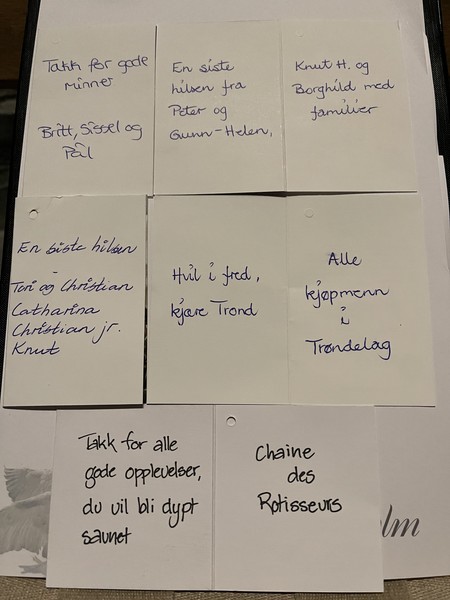 Takk for gode
minner
Britt, Sissel og
Pål
En siste
hilsen fra
Peter og
Gunn-Helen,
Knut H. og
Borghild med
familier
En siste hilsen
-
Turi og Christian
Catharina
Christian jr.
Knut
Hvil i fred,
kjære Trond
Alle
kjøpmenn
i
Trøndelag
Takk for alle
gode opplevelser,
du vil bli dypt
savnet
Chaine
des
Rotisseurs
lm